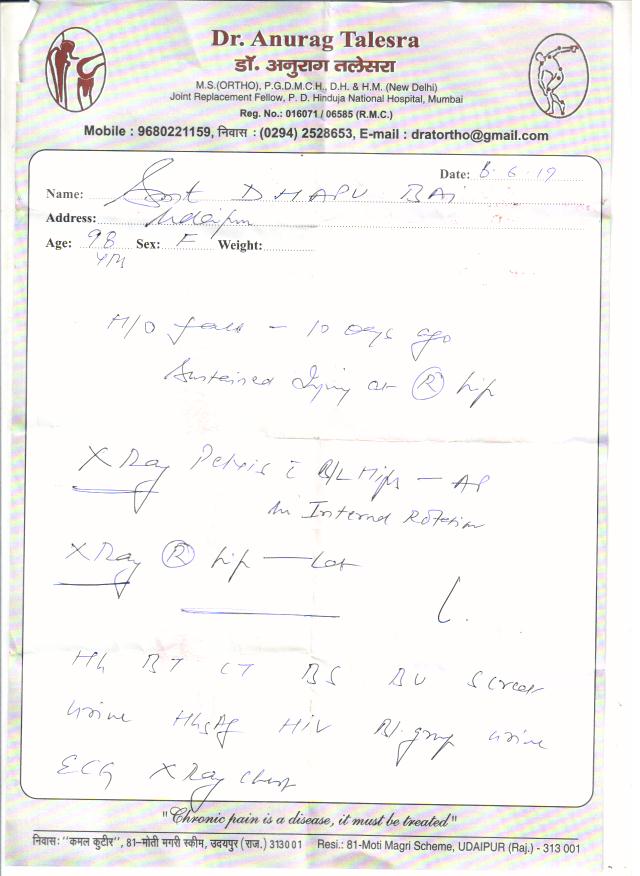 Dr. Anurag Talesra
डॉ. अनुराग तलेसरा
M.S.(ORTHO), P.G.D.M.C.H., D.H. & H.M. (New Delhi)
Joint Replacement Fellow, P. D. Hinduja National Hospital, Mumbai
Reg. No.: 016071 / 06585 (R.M.C.)
Mobile : 9680221159, निवास : (0294) 2528653, E-mail : dratortho@gmail.com
Date: 6.19
Name: Smt DHAPU BAI
Address: Udaipur
Age: 98 Sex: F Weight:
H/O fall - 10 Days ago
Sustained Injury at (R) hip
X Ray Pelvis c̄ B/L Hips - AP
in Internal Rotation
X Ray (R) hip - Lat
Hb BT CT BS BU S creat
Urine HbsAg HIV Bl. group Urine
ECG X Ray chest
"Chronic pain is a disease, it must be treated"
निवास: "कमल कुटीर", 81-मोती मगरी स्कीम, उदयपुर (राज.) 313001 Resi.: 81-Moti Magri Scheme, UDAIPUR (Raj.) - 313 001